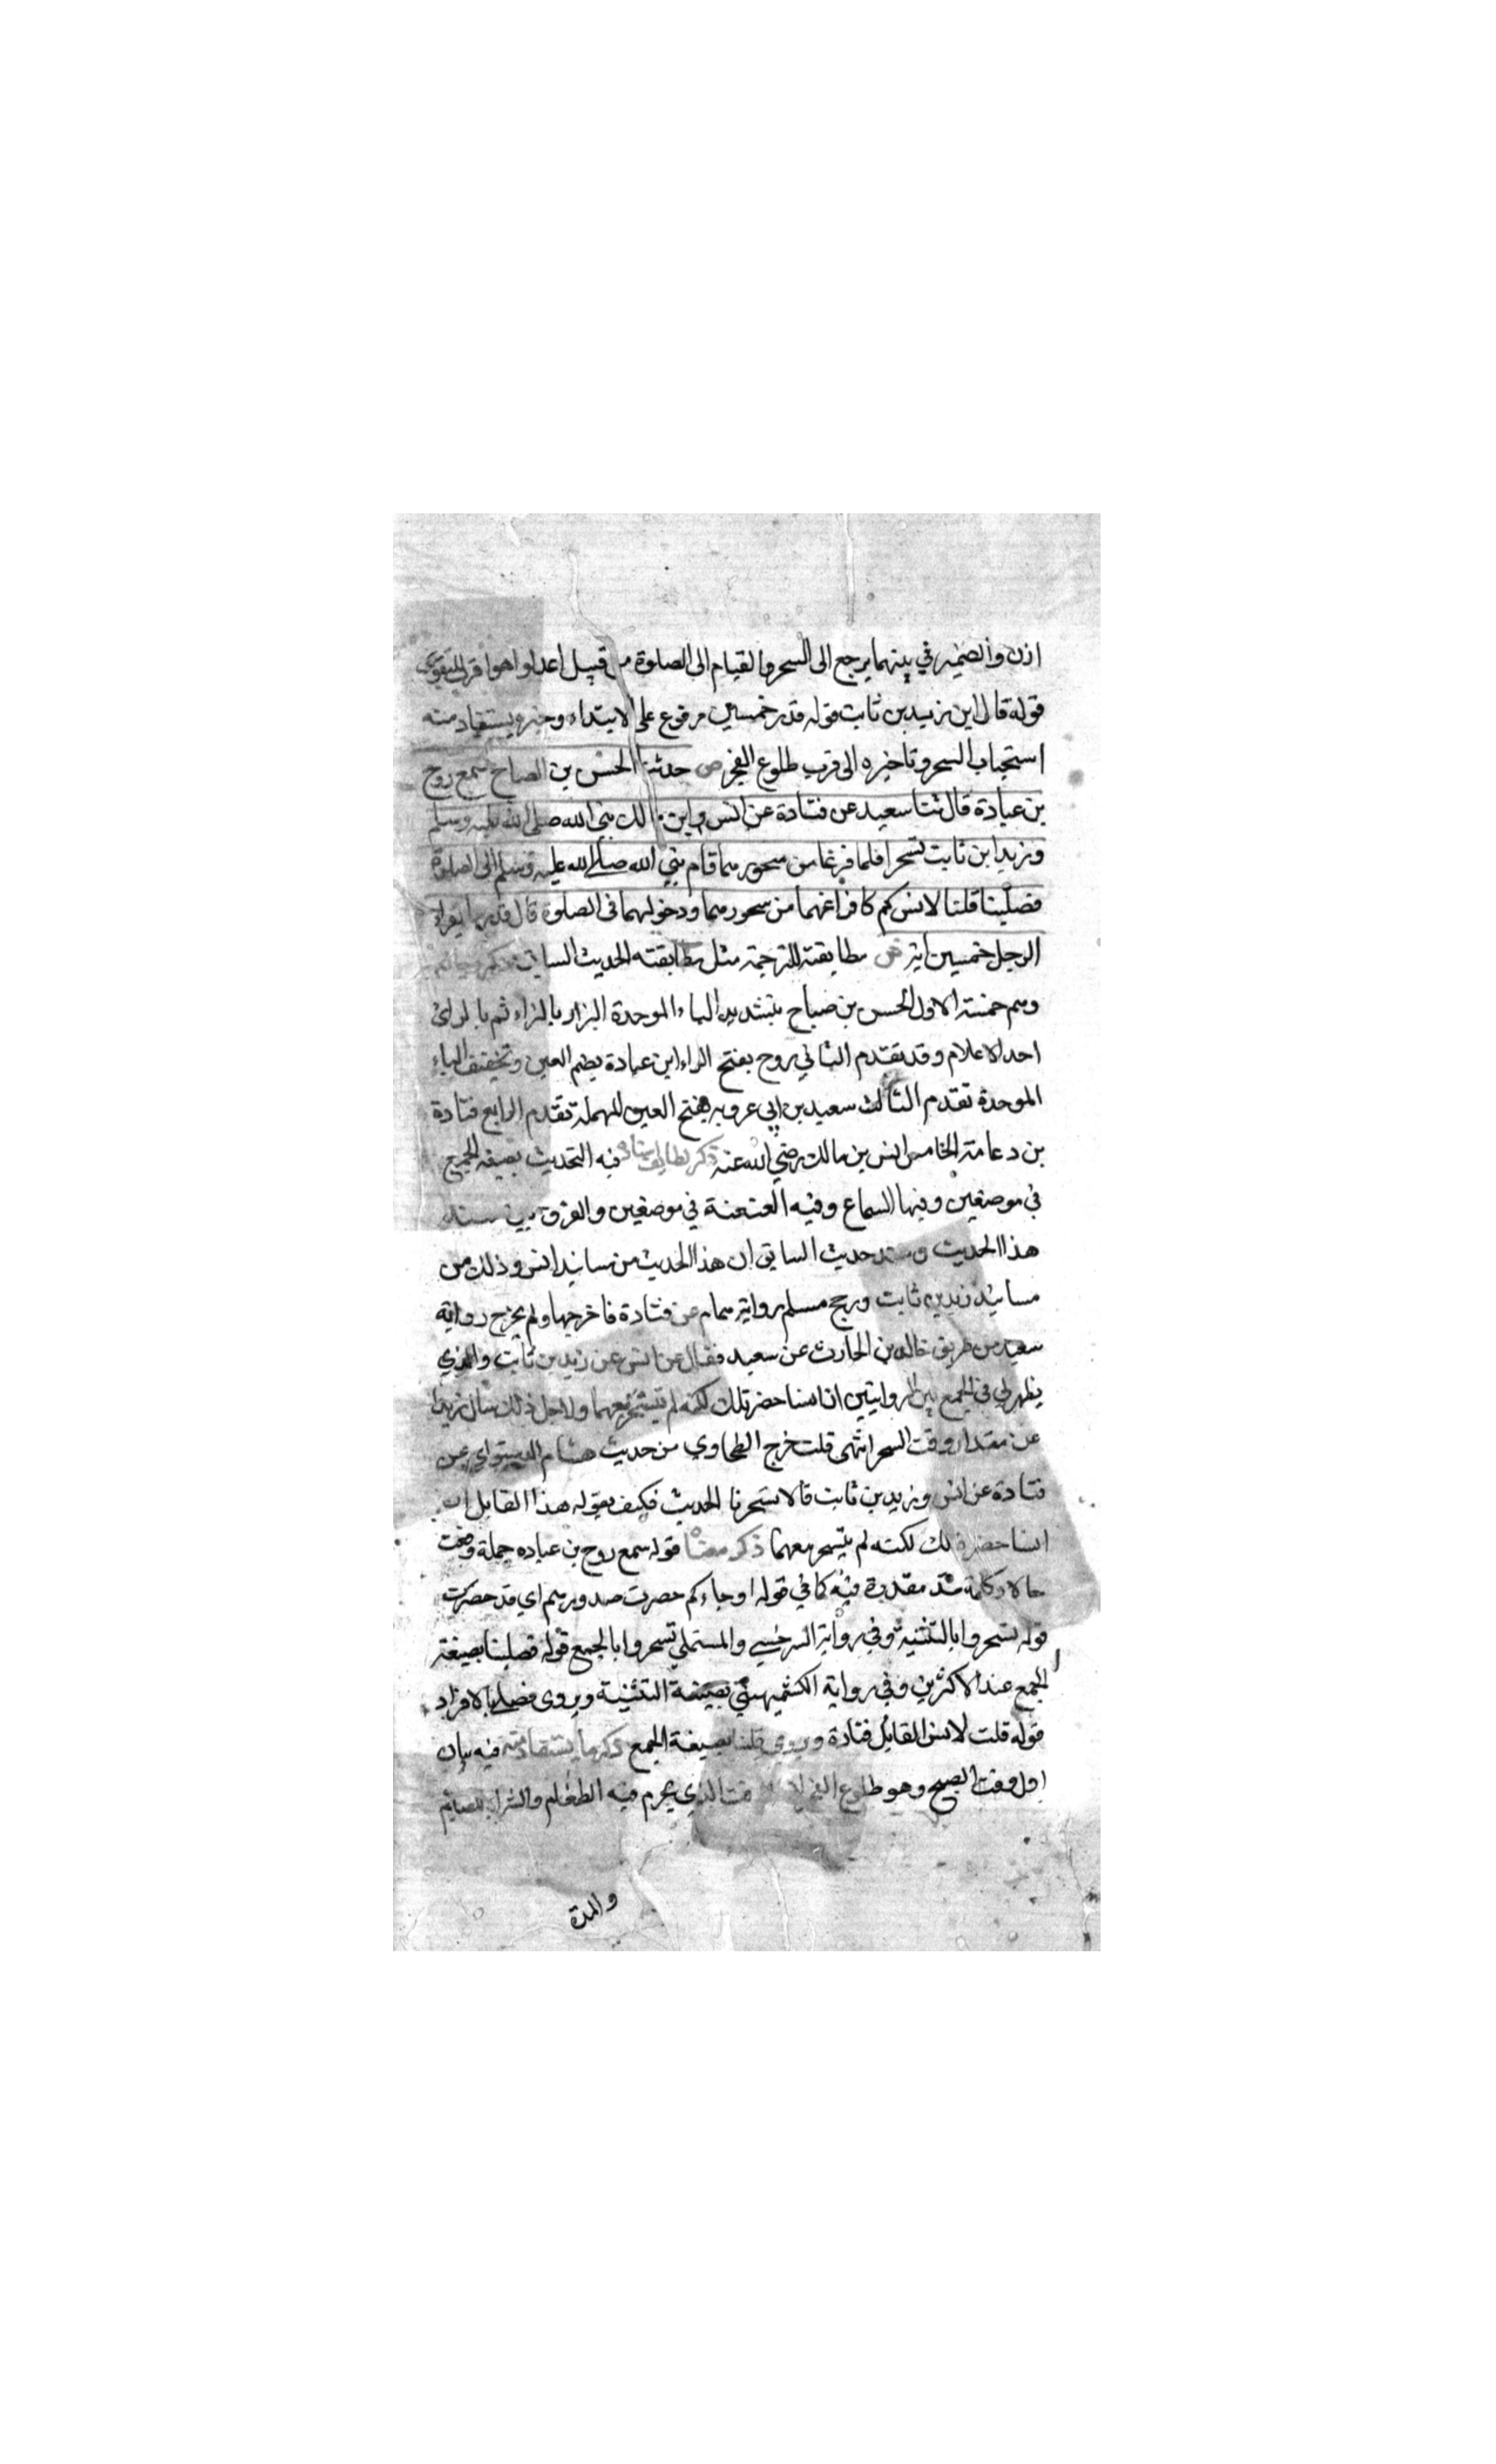 اذن والضمير في بينهما يرجع الى السحر والقيام الى الصلوة من قبيل اعدلوا هوا قرب للتقوى
قوله قال اين زيد بن ثابت قوله قدر خمسين مرفوع على الابتداء وخبره ويستفاد منه
استحباب السحر وتاخيره الى قرب طلوع الفجر ص حدثنا الحسن بن الصباح سمع روح
بن عبادة قال ثنا سعيد عن قتادة عن انس ابن مالك نبي الله صلى الله عليه وسلم
وزيد ابن ثابت تسحرا فلما فرغا من سحورهما قام نبي الله صلى الله عليه وسلم الى الصلوة
فصلينا قلنا لانس كم كا فراغهما من سحورهما ودخولهما في الصلوة قال قدر ما يقراء
الرجل خمسين اية ش مطابقته للترجمة مثل مطابقته الحديث السابق ذكر رجاله
وهم خمسة الاول الحسن بن صباح بتشديد الباء الموحدة البزار بالزاء ثم بالرائ
احد الاعلام وقد تقدم الثاني روح بفتح الراء ابن عبادة بضم العين وتخفيف الباء
الموحدة تقدم الثالث سعيد بن ابي عروبه بفتح العين المهملة تقدم الرابع قتادة
بن دعامة الخامس انس بن مالك رضي الله عنه ذكر لطايف اسناده فيه التحديث بصيغه الجمع
في موضعين وفيها السماع وفيه العنعنة في موضعين والفرق بين سند
هذا الحديث وسند حديث السابق ان هذا الحديث من مسانيد انس وذلك من
مسانيد زيد بن ثابت ورجح مسلم رواية همام عن قتادة فاخرجها ولم يخرج رواية
سعيد من طريق خالد بن الحارث عن سعيد فقال عن انس عن زيد بن ثابت والذي
يظهر لي في الجمع بين الروايتين ان انسا حضر تلك لكنه لم يتسحر معهما ولاجل ذلك سال زيدا
عن مقدار وقت السحر انتهى قلت خرج الطحاوي من حديث هشام الدستواي عن
قتادة عن انس وزيد بن ثابت قالا تسحرنا الحديث فكيف يقوله هذا القايل ان
انسا حضر ذلك لكنه لم يتسحر معهما ذكر معناه قوله سمع روح بن عباده جملة وقعت
حالا وكلمة قد مقدرة فيه كما في قوله او جاءكم حصرت صدورهم اي قد حصرت
قوله تسحروا بالتثنية وفي رواية السرخسي والمستملي تسحروا بالجمع قوله فصلينا بصيغة
الجمع عند الاكثرين وفي رواية الكشميهني بصيغة التثنية ويروى فصلى بالافراد
قوله قلت لانس القايل قتادة ويروى قلنا بصيغة الجمع ذكر ما يستفاد منه فيه بيان
اول وقت الصبح وهو طلوع الفجر لانه الوقت الذي يحرم فيه الطعام والشراب للصايم
والمدة